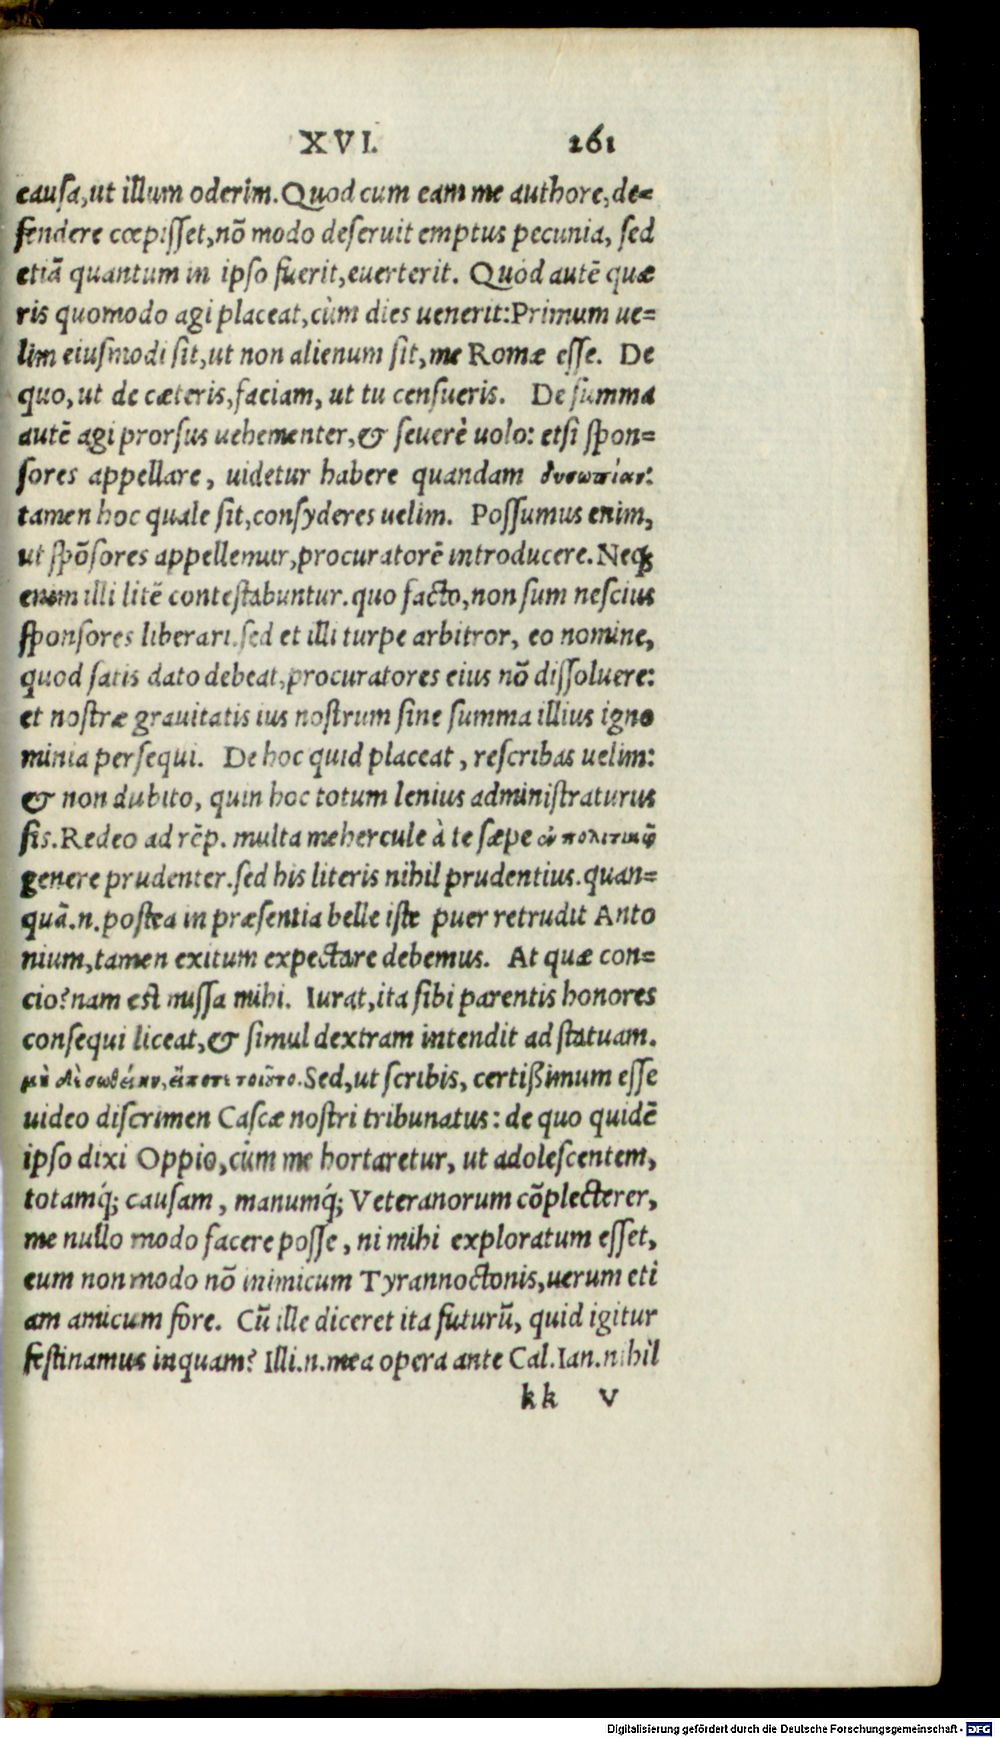 XVI. 261
causa, ut illum oderim. Quod cum eam me authore, de=
fendere cœpisset, nõ modo deseruit emptus pecunia, sed
etiã quantum in ipso fuerit, euerterit. Quòd autẽ quæ
ris quomodo agi placeat, cùm dies uenerit: Primum ue=
lim eiusmodi sit, ut non alienum sit, me Romæ esse. De
quo, ut de cæteris, faciam, ut tu censueris. De summa
autẽ agi prorsus uehementer, & seuerè uolo: etsi spon=
sores appellare, uidetur habere quandam δυσωπίαν:
tamen hoc quale sit, consyderes uelim. Possumus enim,
ut spõsores appellemur, procuratorẽ introducere. Neq;
enim illi litẽ contestabuntur. quo facto, non sum nescius
sponsores liberari. sed et illi turpe arbitror, eo nomine,
quod satis dato debeat, procuratores eius nõ dissoluere:
et nostræ grauitatis ius nostrum sine summa illius igno
minia persequi. De hoc quid placeat, rescribas uelim:
& non dubito, quin hoc totum lenius administraturus
sis. Redeo ad rẽp. multa mehercule à te sæpe ἐν πολιτικῷ
genere prudenter. sed his literis nihil prudentius. quan=
quã.n. postea in præsentia belle iste puer retrudit Anto
nium, tamen exitum expectare debemus. At quæ con=
cio? nam est missa mihi. Iurat, ita sibi parentis honores
consequi liceat, & simul dextram intendit ad statuam.
μὴ δὲ σωθείην, ὑπό τι τοιῦτο. Sed, ut scribis, certißimum esse
uideo discrimen Cascæ nostri tribunatus: de quo quidẽ
ipso dixi Oppio, cùm me hortaretur, ut adolescentem,
totamq́; causam, manumq́; Veteranorum cõplecterer,
me nullo modo facere posse, ni mihi exploratum esset,
eum non modo nõ inimicum Tyrannoctonis, uerum eti
am amicum fore. Cũ ille diceret ita futurũ, quid igitur
festinamus inquam? Illi.n. mea opera ante Cal. Ian. nihil
kk v
Digitalisierung gefördert durch die Deutsche Forschungsgemeinschaft - DFG